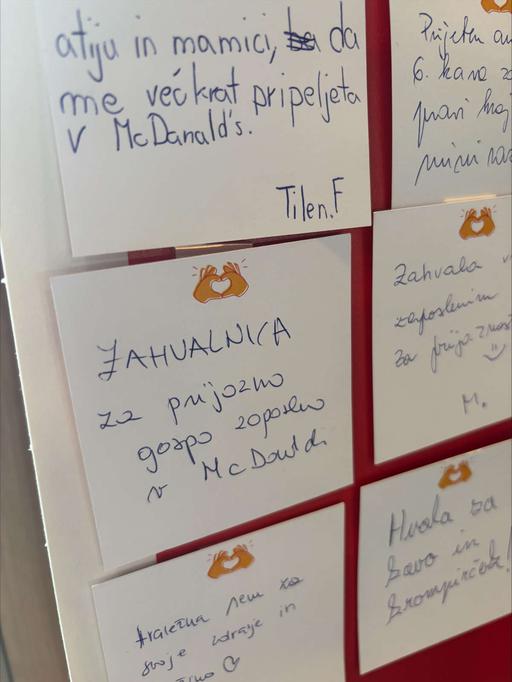 atiju in mamici, da
me večkrat pripeljeta
v McDanald's.
Tilen.F
Prijeten
6. kava
pravi
mini
ZAHVALNICA
za prijazno
gospo zaposleno
v McDonald's
Zahvala
zaposlenim
Za prijaznost
M.
Hvala za
kavo in
krompirček!
Hvaležna sem za
svoje zdravje in